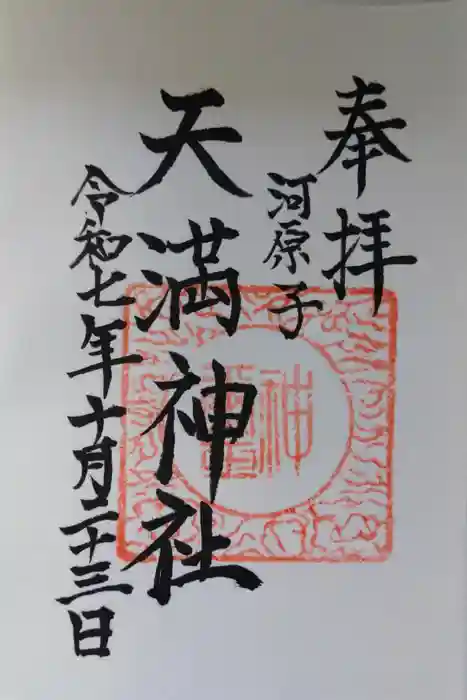 奉拝
河原子
天満神社
令和七年十月二十三日